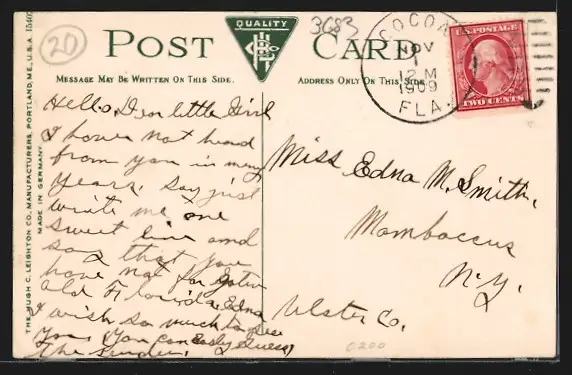 20
3683
QUALITY
POST CARD
MESSAGE MAY BE WRITTEN ON THIS SIDE.
ADDRESS ONLY ON THIS SIDE.
COCOA
NOV
1
12 M
1909
FLA.
U.S. POSTAGE
TWO CENTS
THE HUGH C. LEIGHTON CO., MANUFACTURERS, PORTLAND, ME., U.S.A.
MADE IN GERMANY
Hello Dear little Girl
I have not heard
from you in many
years. Say just
write me one
sweet line and
say that you
have not forgotten
old Florida. Edna
I wish so much to see
you. You can easly guess
the sender.
Miss Edna M. Smith.
Mombaccus
N.Y.
Ulster Co.
0200